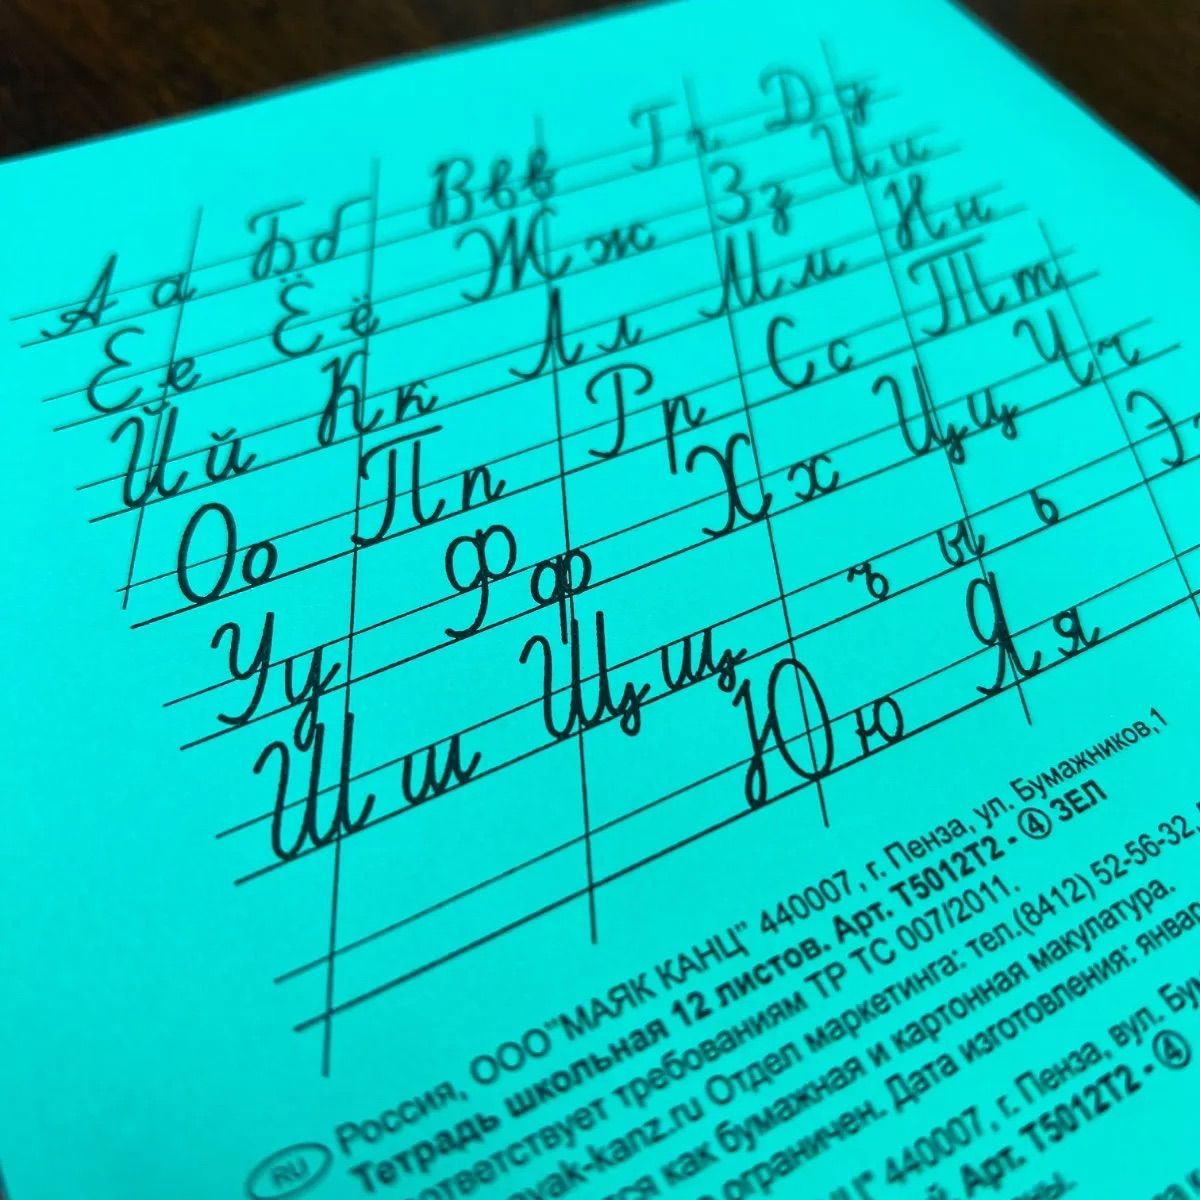 А а Б б В в в Г г Д д
Е е Ё ё Ж ж З з И и
Й й К к Л л М м Н н
О о П п Р р С с Т т
У у Ф ф Х х Ц ц Ч ч
Ш ш Щ щ ъ ы ь Э
Ю ю Я я
RU Россия, ООО "МАЯК КАНЦ" 440007, г. Пенза, ул. Бумажников,1
Тетрадь школьная 12 листов. Арт. Т5012Т2 - ④ ЗЕЛ
ответствует требованиям ТР ТС 007/2011.
yak-kanz.ru Отдел маркетинга: тел.(8412) 52-56-32,
как бумажная и картонная макулатура.
ограничен. Дата изготовления:
440007, г. Пенза, вул.
Арт. Т5012Т2 - ④